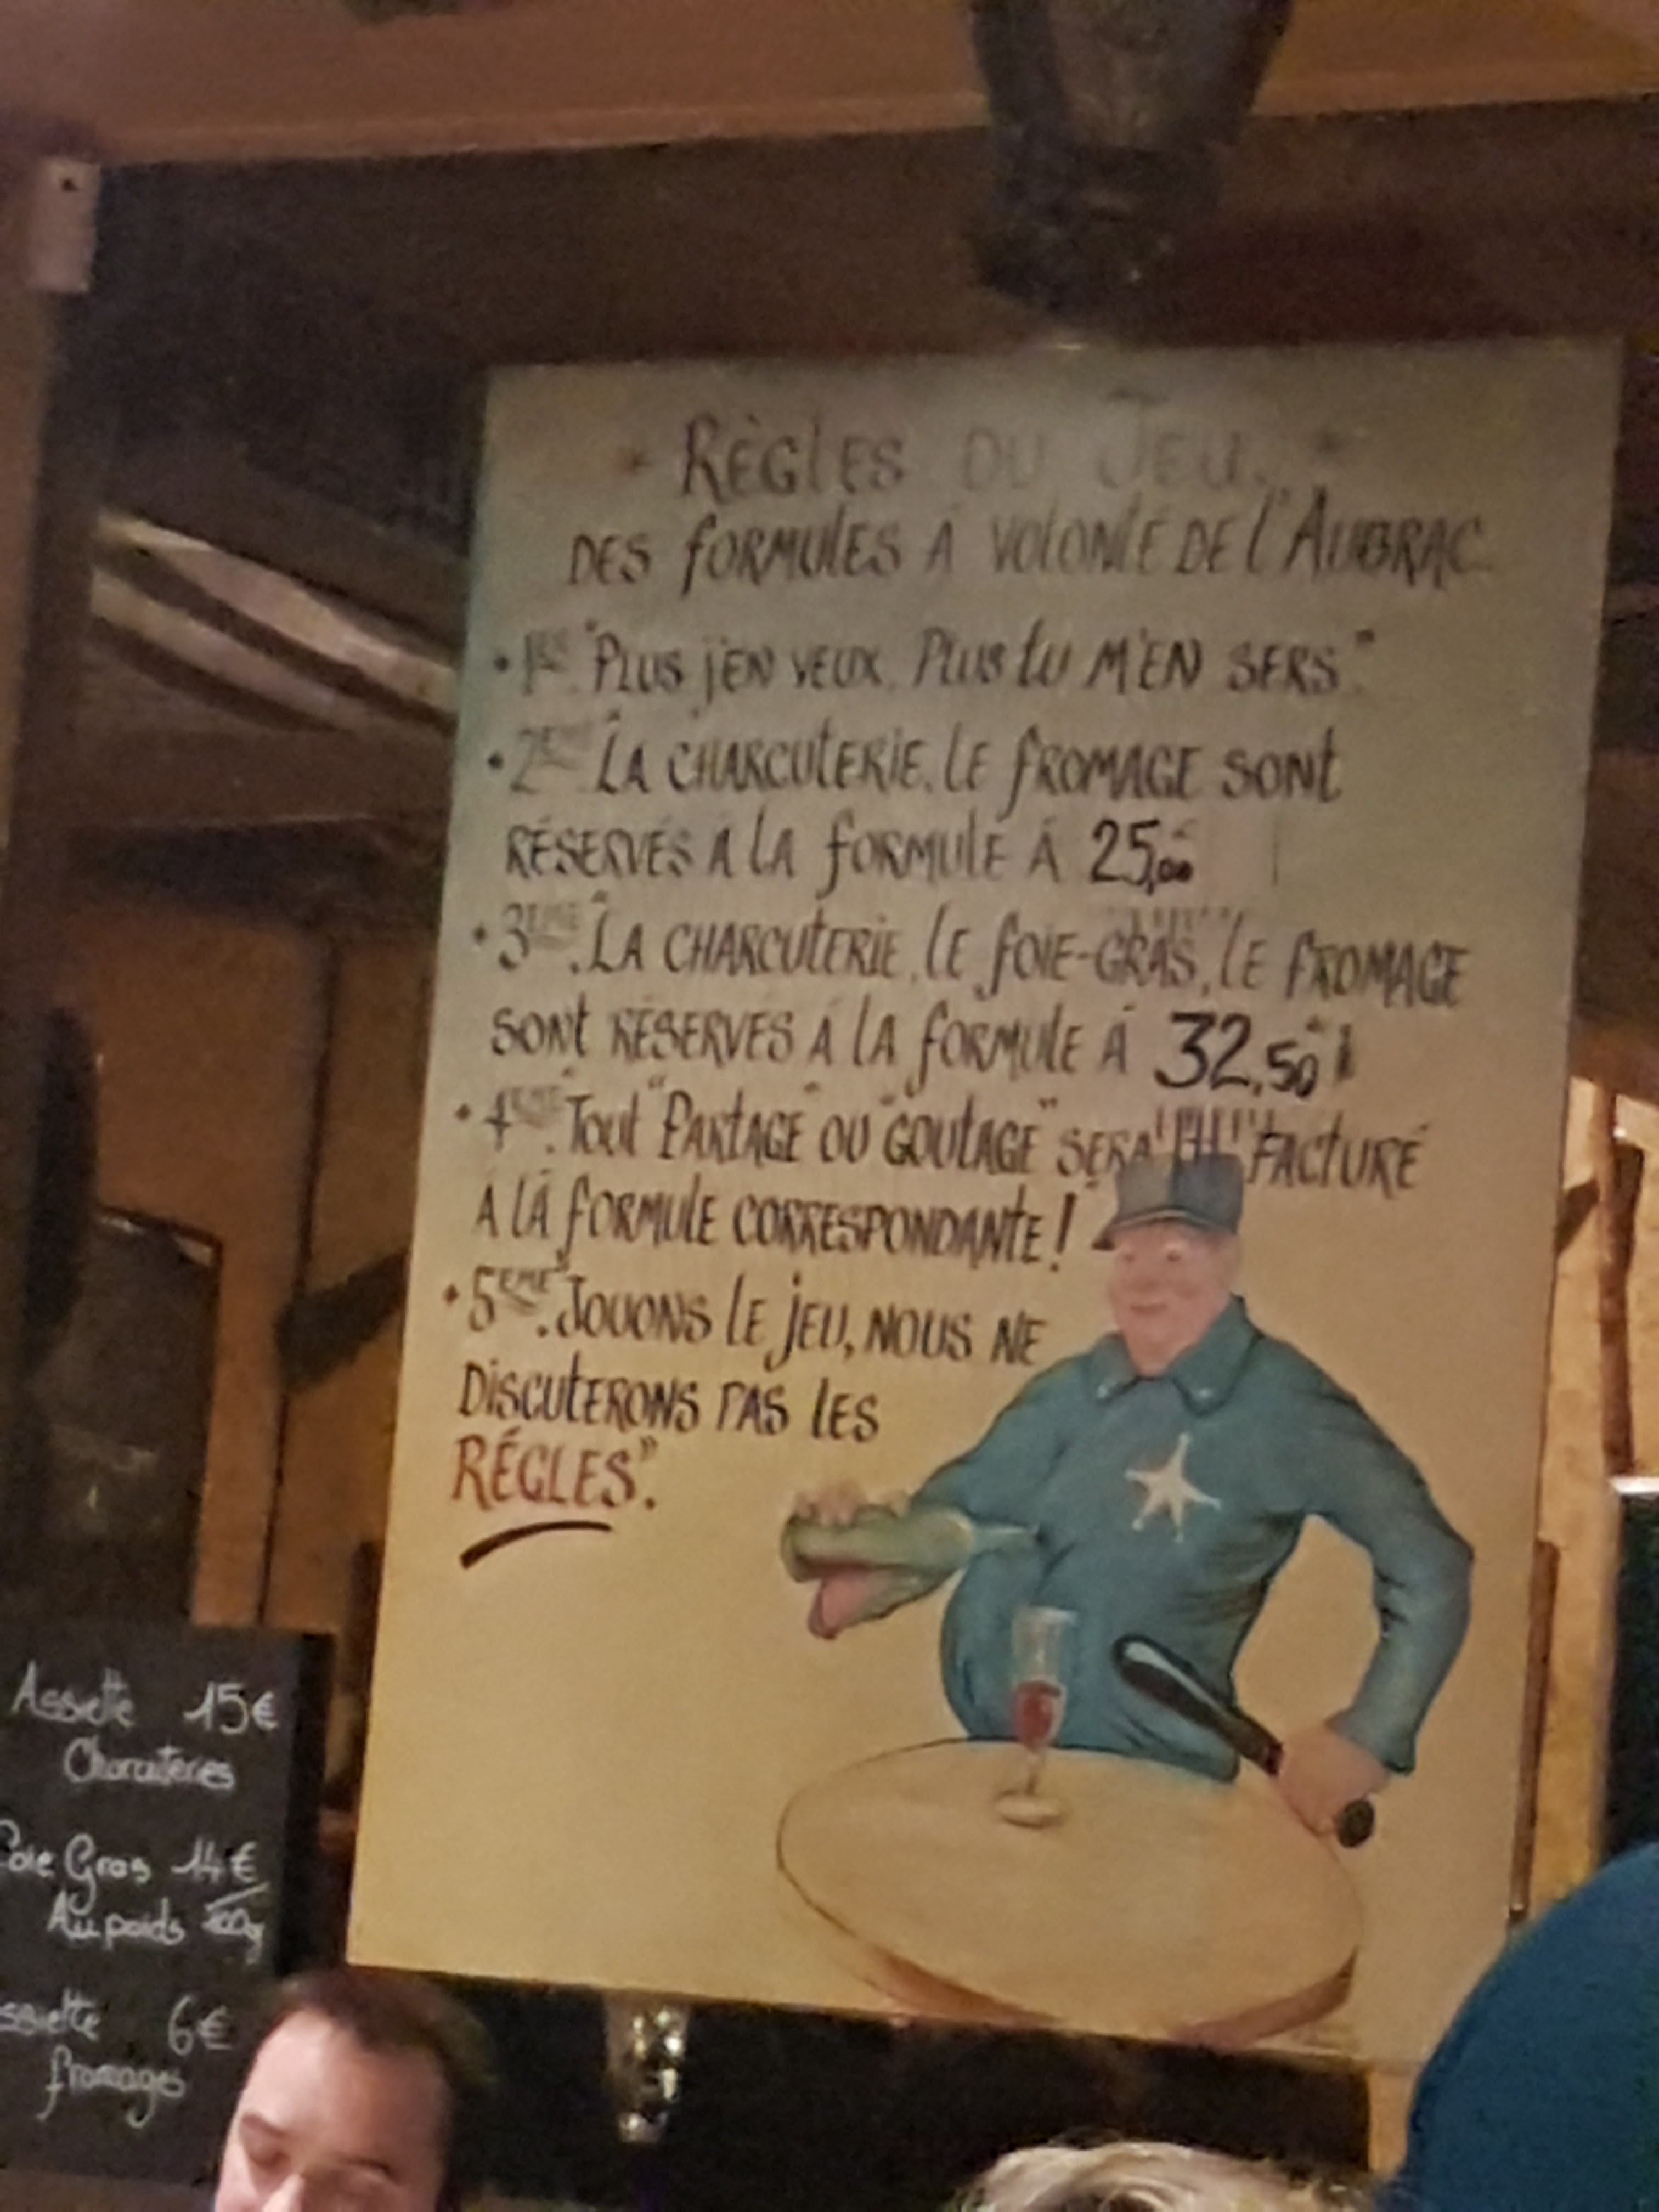 RÈGLES DU JEU.
DES FORMULES À VOLONTÉ DE L'AUBRAC
• 1ER. "PLUS J'EN VEUX. PLUS TU M'EN SERS."
• 2EME. "LA CHARCUTERIE, LE FROMAGE SONT
RÉSERVÉS A LA FORMULE À 25,00
• 3EME. "LA CHARCUTERIE, LE FOIE-GRAS, LE FROMAGE
SONT RÉSERVÉS À LA FORMULE À 32,50
• 4EME. "TOUT "PARTAGE" OU "GOUTAGE" SERA FACTURÉ
A LA FORMULE CORRESPONDANTE !
• 5EME. "JOUONS LE JEU, NOUS NE
DISCUTERONS PAS LES
RÉGLES".
Assiette 15€
Charcuteries
Foie Gras 14€
Au poids 100g
Assiette 6€
fromages